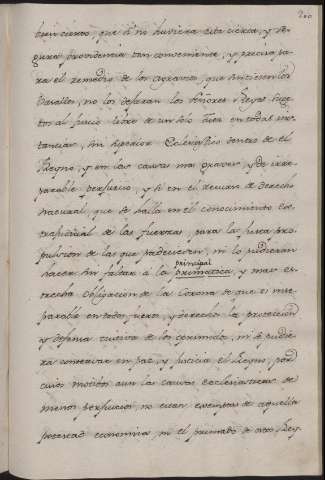 200
bien cierto, que si no huviera esta cierta, y se-
gura providencia tan conveniente, y precisa pa-
ra el remedio de los agravios, que hiciesen los
Vasallos, no los dejaran los Señores Reyes suje-
tos al juicio libre de un solo Juez en todas ins-
tancias, sin superior Eclesiastico dentro de el
Reyno, y en las causas mas graves, y de irre-
parable perjuicio, y si en el decian de derecho
natural, que se halla en el conocimiento ex-
trajudicial de las fuerzas, para la justa pro-
pulsion de las que padeciesen, ni lo pudieran
hacer sin faltar á la principal
primatica, y mas es-
trecha obligacion de la Corona de que es inse-
parable en todo fuero, y derecho la proteccion
y defensa cuesta de los oprimidos, ni se pudie-
ra conservar en paz, y justicia el Reyno, por
cuios motibos aun las causas eclesiasticas de
menos perjuicios, no estan exemptas de aquella
potestad economica, ni el primado de otros Rey-